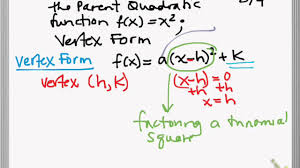 the Parent Quadratic
function f(x) = x²;
Vertex Form
Vertex Form f(x) = a(x-h)² + K
vertex (h, K)
(x-h) = 0
+h +h
x = h
factoring a trinomial
square